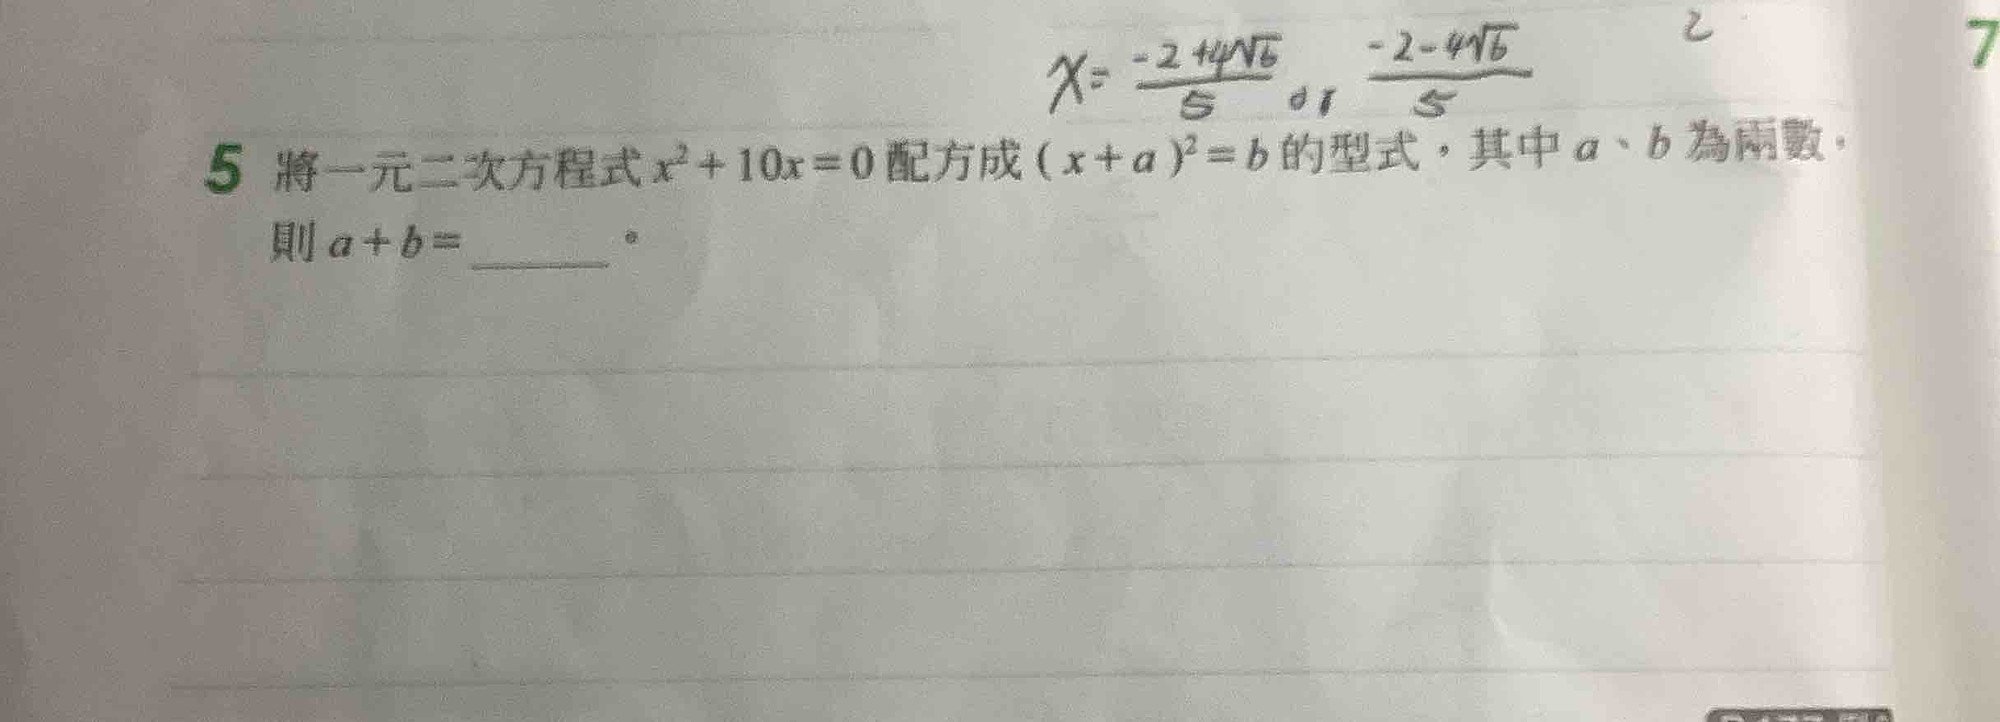 x = \frac{-2+4\sqrt{6}}{5} or \frac{-2-4\sqrt{6}}{5}
2
7
5 將一元二次方程式 x²+10x=0 配方成 ( x+a )²=b 的型式，其中 a、b 為兩數，
則 a+b=______。